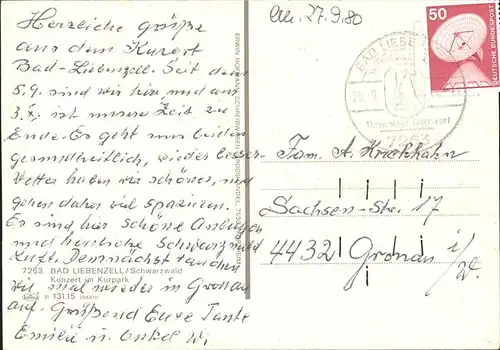 Herzliche Grüße
aus dem Kurort
Bad-Liebenzell. Seit dem
5.9. sind wir hier und am
3.X. ist unsere Zeit zu
Ende. Es geht uns beiden
gesundheitlich, wieder besser.
Wetter haben wir schönes, und
gehen daher viel spazieren.
Es sind hier schöne Anlagen
und herrliche Schwarzwald
Luft. Demnächst tauchen
wir mal wieder in Gronau
auf. Grüßend Eure Tante
Emilie u. Onkel W.
7263 BAD LIEBENZELL/Schwarzwald
Konzert im Kurpark
131.15
27.9.80
BAD LIEBENZELL
7263
50
DEUTSCHE BUNDESPOST
Fam. A. Kruckhahn
Sachsen-Str. 17
4432 Gronau i/W.